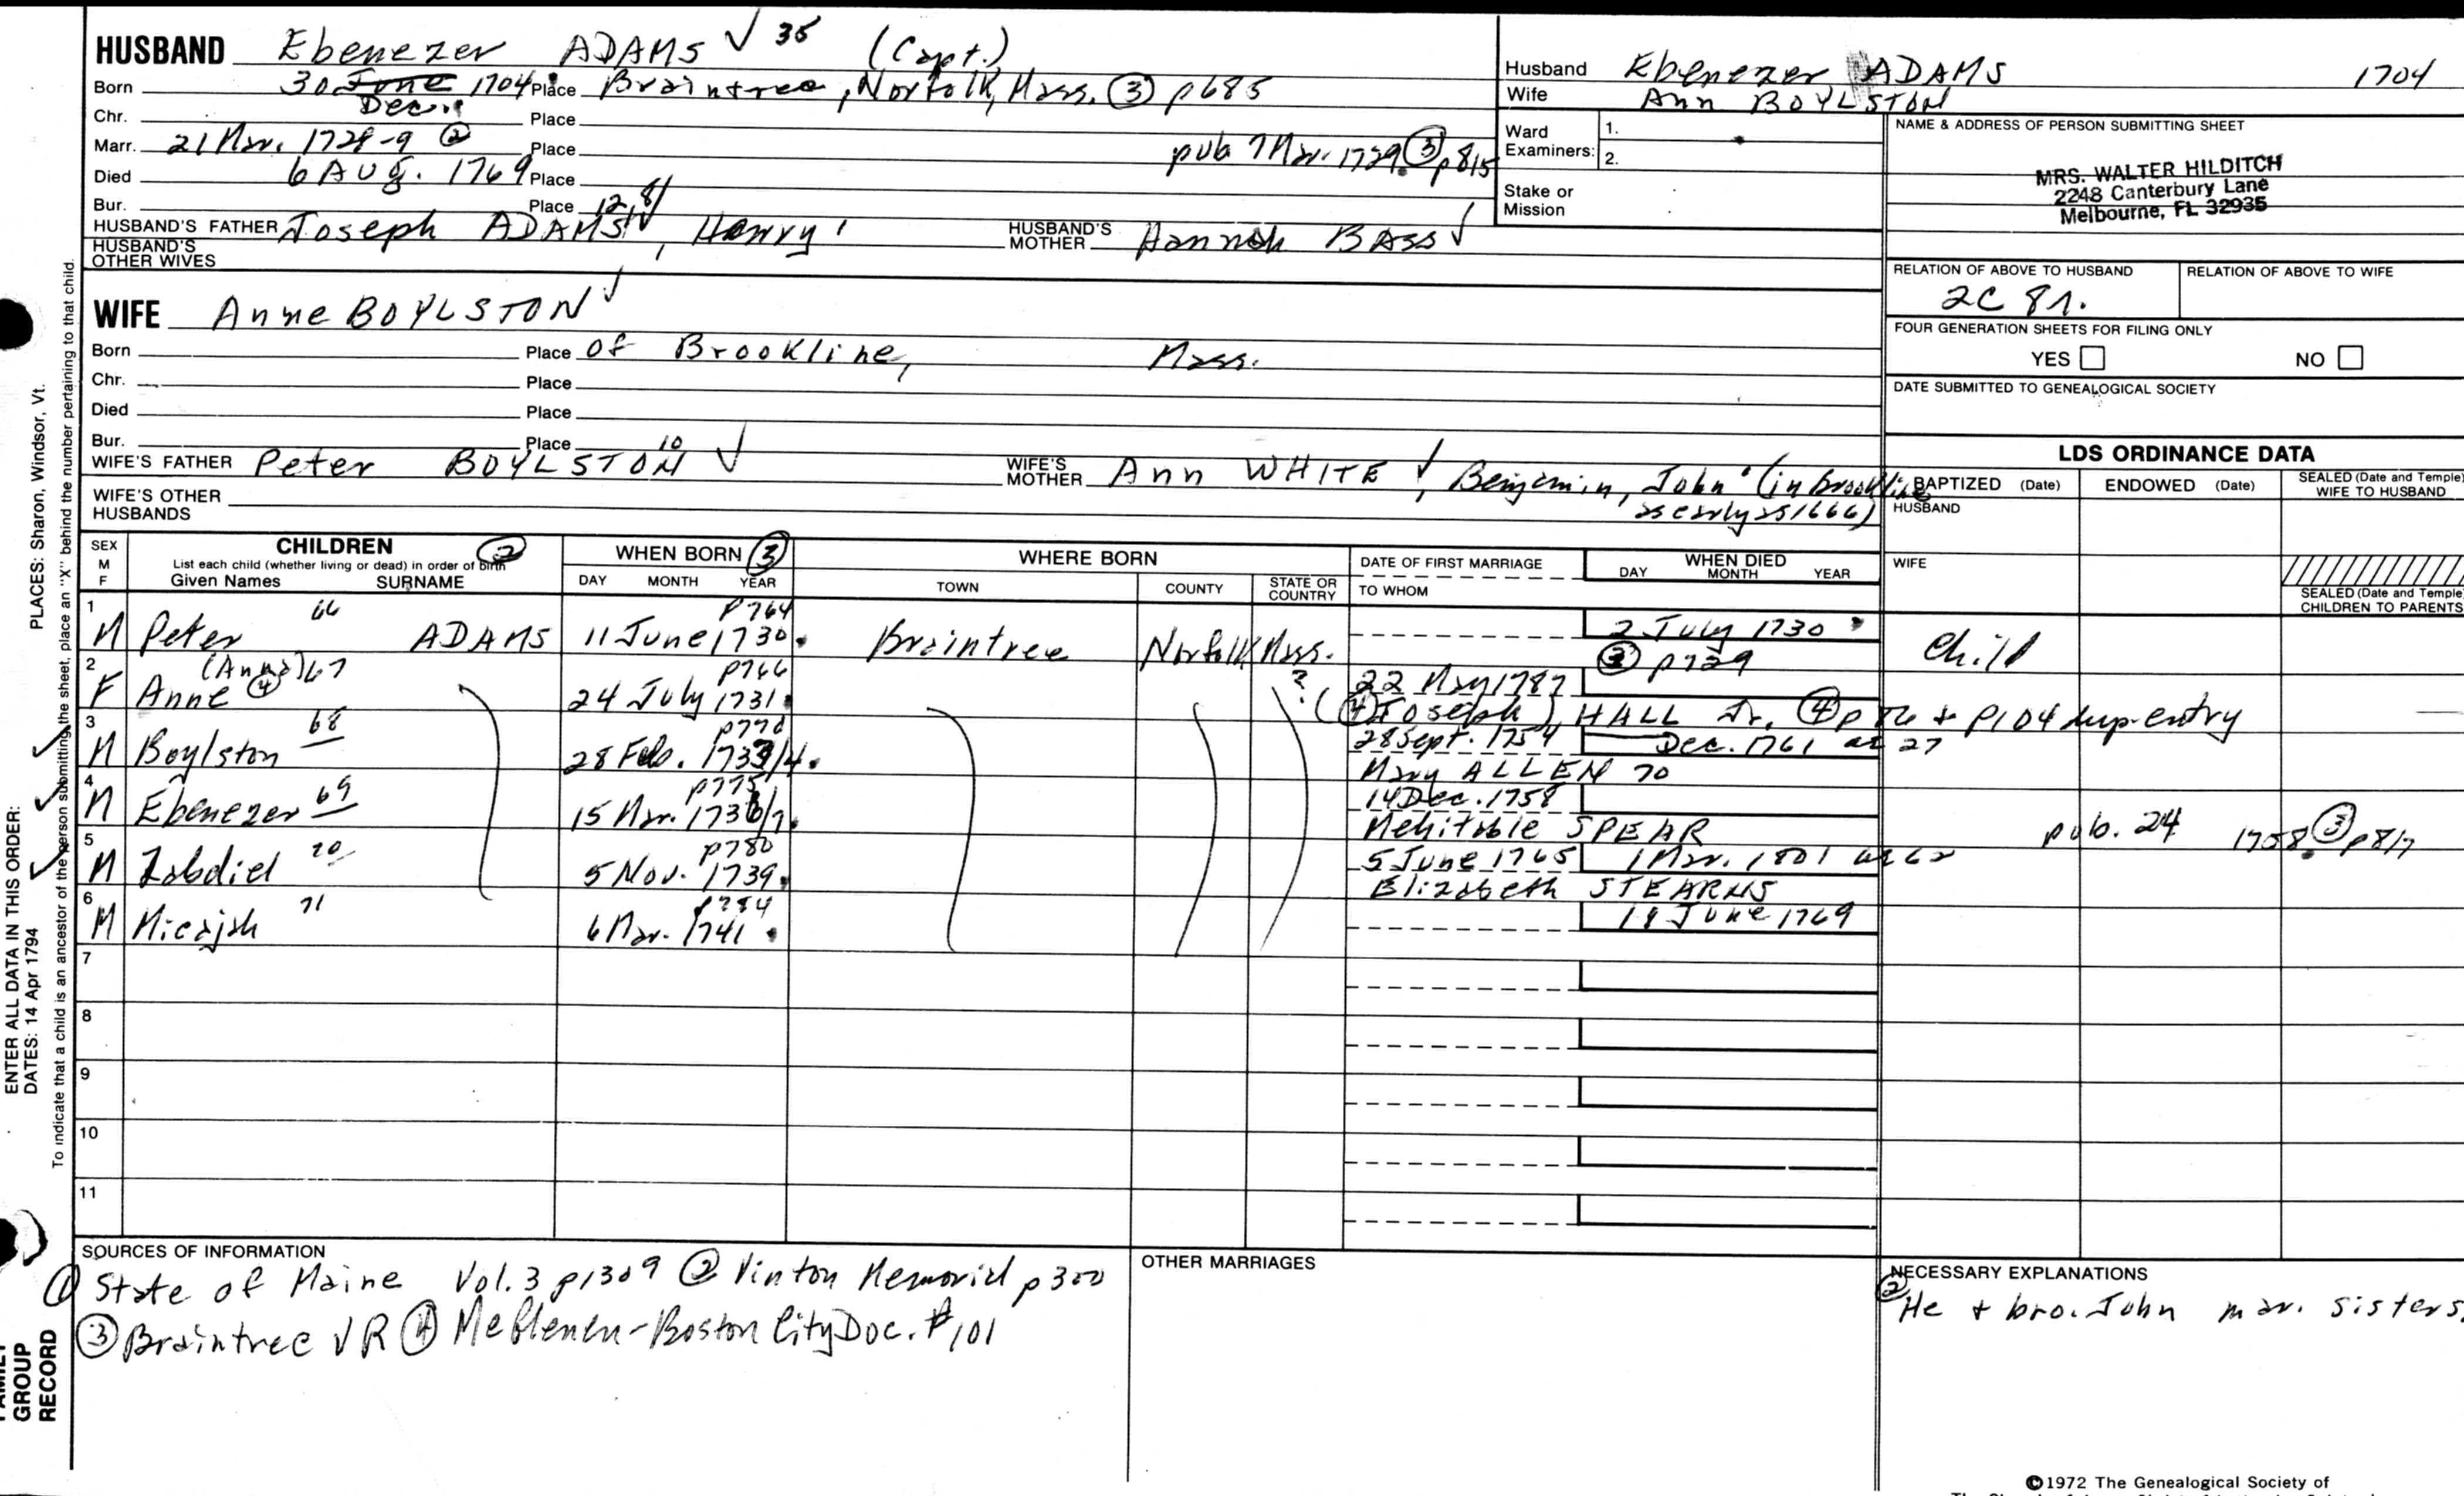 HUSBAND Ebenezer ADAMS ✓ 35 (Capt.)
Born 30 June 1704 Place Braintree, Norfolk, Mass. ③ p685
Dec.
Chr. Place
Marr. 21 Mar. 1728-9 ② Place pub 7 Mar. 1729 ③ p815
Died 6 Aug. 1769 Place
Bur. Place
12, 8/
HUSBAND'S FATHER Joseph ADAMS ✓, Henry HUSBAND'S MOTHER Hannah BASS ✓
HUSBAND'S OTHER WIVES
WIFE Anne BOYLSTON ✓
Born Place of Brookline, Mass.
Chr. Place
Died Place
Bur. Place
10
WIFE'S FATHER Peter BOYLSTON ✓ WIFE'S MOTHER Ann WHITE ✓, Benjamin, John (in Brookline
as early as 1666)
WIFE'S OTHER HUSBANDS
Husband Ebenezer ADAMS 1704
Wife Ann BOYLSTON
Ward Examiners: 1.
2.
Stake or Mission
NAME & ADDRESS OF PERSON SUBMITTING SHEET
MRS. WALTER HILDITCH
2248 Canterbury Lane
Melbourne, FL 32935
RELATION OF ABOVE TO HUSBAND RELATION OF ABOVE TO WIFE
2C 8r.
FOUR GENERATION SHEETS FOR FILING ONLY
YES NO
DATE SUBMITTED TO GENEALOGICAL SOCIETY
LDS ORDINANCE DATA
BAPTIZED (Date) ENDOWED (Date) SEALED (Date and Temple) WIFE TO HUSBAND
HUSBAND
WIFE
SEALED (Date and Temple) CHILDREN TO PARENTS
SEX M F CHILDREN ② WHEN BORN ③ WHERE BORN DATE OF FIRST MARRIAGE WHEN DIED
List each child (whether living or dead) in order of birth
Given Names SURNAME DAY MONTH YEAR TOWN COUNTY STATE OR COUNTRY TO WHOM DAY MONTH YEAR
1 66 p764
M Peter ADAMS 11 June 1730 Braintree Norfolk Mass. 2 July 1730 Child
③ p729
2 (Anna) 67 p766
F Anne ④ 24 July 1731 ? 22 May 1787
(④ Joseph) HALL Jr. ④ p86 + p104 dup-entry
3 68 p770
M Boylston 28 Feb. 1733/4 28 Sept. 1754 Dec. 1761 ae 27
Mary ALLEN 70
4 p775
M Ebenezer 69 15 Mar. 1736/7 14 Dec. 1758
Mehitable SPEAR pub. 24 1758 ③ p817
5 70 p780
M Zabdiel 5 Nov. 1739 5 June 1765 1 Mar. 1801 ae 62
Elizabeth STEARNS
6 71 p784
M Micajah 6 Mar. 1741 18 June 1769
7
8
9
10
11
SOURCES OF INFORMATION
① State of Maine Vol. 3 p1309 ② Vinton Memorial p300
③ Braintree VR ④ McGlenen-Boston City Doc. #101
OTHER MARRIAGES
NECESSARY EXPLANATIONS
② He + bro. John mar. sisters.
©1972 The Genealogical Society of
PLACES: Sharon, Windsor, Vt.
To indicate that a child is an ancestor of the person submitting the sheet, place an "X" behind the number pertaining to that child.
ENTER ALL DATA IN THIS ORDER:
DATES: 14 Apr 1794
FAMILY
GROUP
RECORD